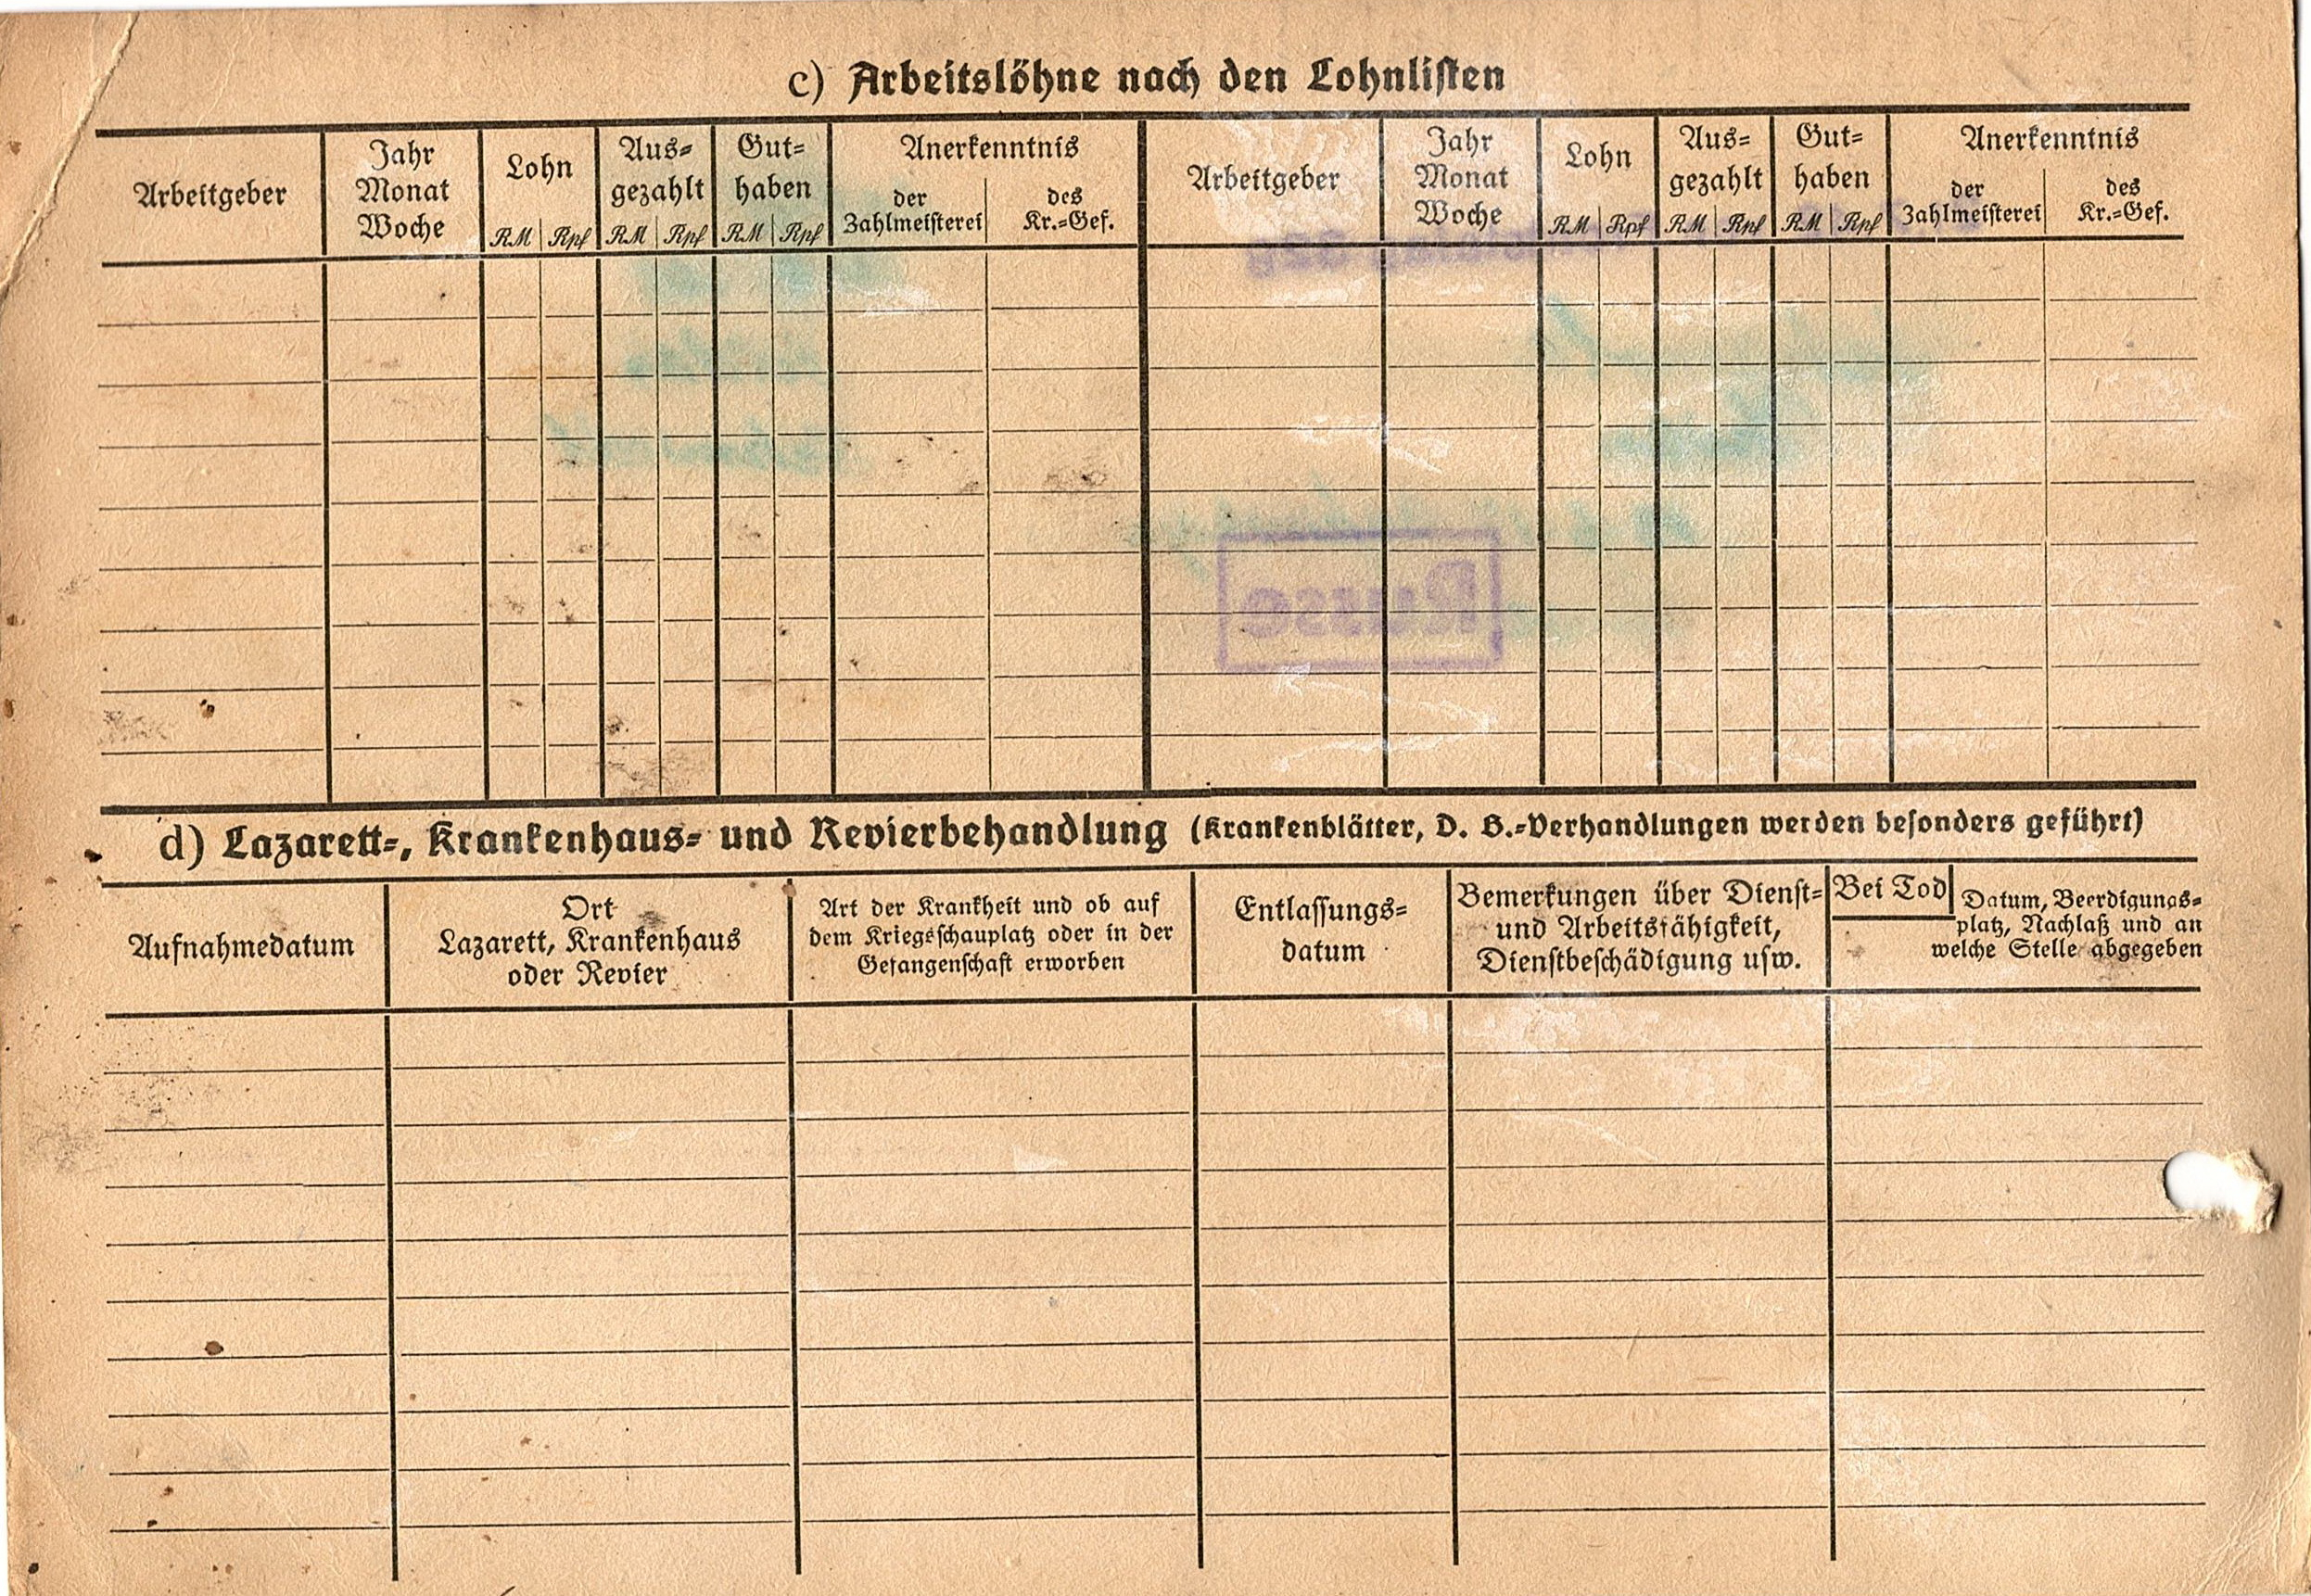 c) Arbeitslöhne nach den Lohnlisten
Arbeitgeber
Jahr
Monat
Woche
Lohn
RM Rpf
Aus-
gezahlt
RM Rpf
Gut-
haben
RM Rpf
Anerkenntnis
der
Zahlmeisterei
des
Kr.-Gef.
Arbeitgeber
Jahr
Monat
Woche
Lohn
RM Rpf
Aus-
gezahlt
RM Rpf
Gut-
haben
RM Rpf
Anerkenntnis
der
Zahlmeisterei
des
Kr.-Gef.
Russe
d) Lazarett-, Krankenhaus- und Revierbehandlung (Krankenblätter, D. B.-Verhandlungen werden besonders geführt)
Aufnahmedatum
Ort
Lazarett, Krankenhaus
oder Revier
Art der Krankheit und ob auf
dem Kriegsschauplatz oder in der
Gefangenschaft erworben
Entlassungs-
datum
Bemerkungen über Dienst-
und Arbeitsfähigkeit,
Dienstbeschädigung usw.
Bei Tod
Datum, Beerdigungs-
platz, Nachlaß und an
welche Stelle abgegeben